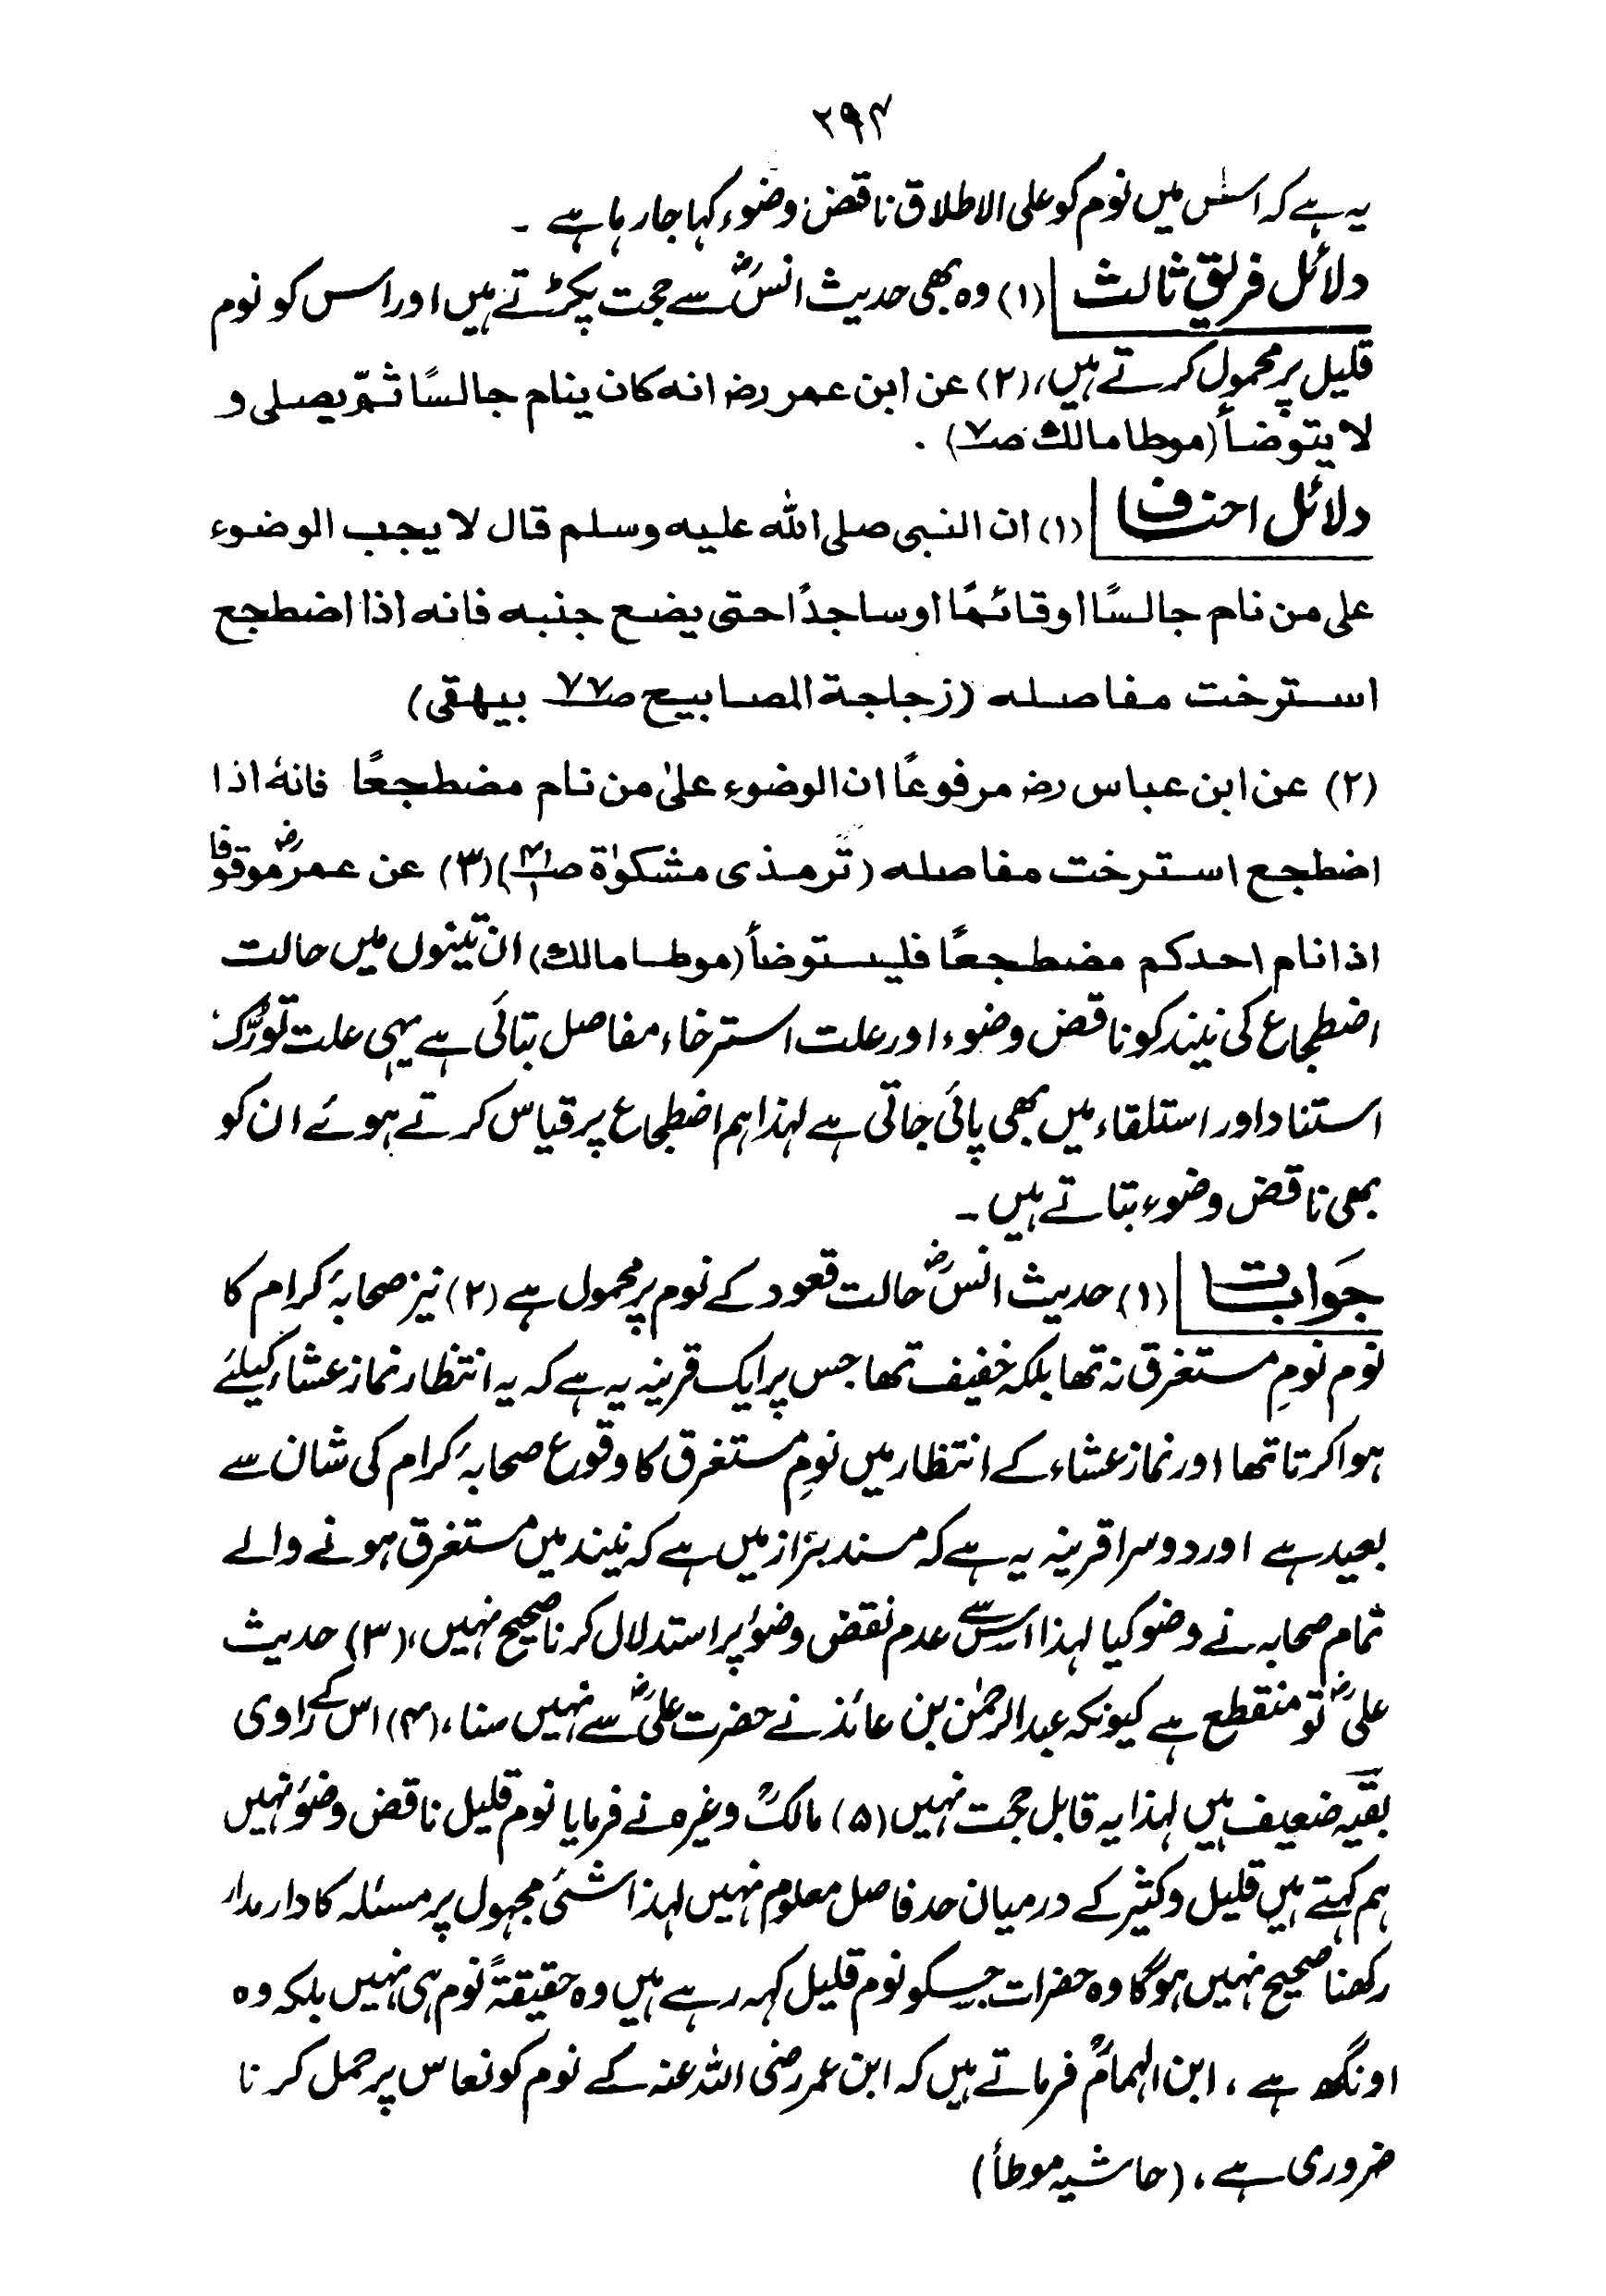 ۲۹۴
یہ ہے کہ اسٰس میں نوم کو علی الاطلاق ناقض وضوء کہا جارہا ہے ۔
دلائل فریق ثالث (۱) وہ بھی حدیث انسؓ سے حجت پکڑتے ہیں اور اسس کو نوم
قلیل پر محمول کرتے ہیں، (۲) عن ابن عمر رضہ انه کان ینام جالسًا ثمّ یصلی و
لا یتوضأ (موطا مالک صـ۷) .
دلائل احناف (۱) ان النبی صلی الله علیه وسلم قال لا یجب الوضوء
علی من نام جالسًا او قائمًا او ساجدًا حتی یضع جنبه فانه اذا اضطجع
استرخت مفاصله (زجاجة المصابیح صـ۷۷ بیهقی)
(۲) عن ابن عباس رضہ مرفوعًا ان الوضوء علیٰ من نام مضطجعًا فانهٗ اذا
اضطجع استرخت مفاصله (ترمذی مشکوٰة صـ۴۱/۱) (۳) عن عمرؓ موقوفا
اذا نام احدکم مضطجعًا فلیتوضأ (موطا مالک) ان تینوں میں حالت
اضطجاع کی نیند کو ناقض وضوء اور علت استرخاء مفاصل بتائی ہے یہی علت تورُّک،
استناد اور استلقاء میں بھی پائی جاتی ہے لہذا ہم اضطجاع پر قیاس کرتے ہوئے ان کو
بھی ناقض وضوء بتاتے ہیں ۔
جَوابات (۱) حدیث انسؓ حالت قعود کے نوم پر محمول ہے (۲) نیز صحابۂ کرام کا
نوم نومِ مستغرق نہ تھا بلکہ خفیف تھا جس پر ایک قرینہ یہ ہے کہ یہ انتظار نماز عشاء کیلئے
ہوا کرتا تھا اور نماز عشاء کے انتظار میں نومِ مستغرق کا وقوع صحابۂ کرام کی شان سے
بعید ہے اور دوسرا قرینہ یہ ہے کہ مسند بزّاز میں ہے کہ نیند میں مستغرق ہونے والے
تمام صحابہ نے وضو کیا لہذا اسس سے عدم نقض وضوٴ پر استدلال کرنا صحیح نہیں، (۳) حدیث
علیؓ تو منقطع ہے کیونکہ عبدالرحمٰن بن عائذ نے حضرت علیؓ سے نہیں سنا، (۴) اس کے راوی
بقیّہ ضعیف ہیں لہذا یہ قابل حجت نہیں (۵) مالکؒ وغیرہ نے فرمایا نوم قلیل ناقض وضوٴ نہیں
ہم کہتے ہیں قلیل و کثیر کے درمیان حد فاصل معلوم نہیں لہذا شئی مجہول پر مسئلہ کا دار مدار
رکھنا صحیح نہیں ہوگا وہ حضرات جسکو نوم قلیل کہہ رہے ہیں وہ حقیقةً نوم ہی نہیں بلکہ وہ
اونگھ ہے، ابن الہمامؒ فرماتے ہیں کہ ابن عمر رضی اللہ عنہ کے نوم کو نعاس پر حمل کرنا
ضروری ہے، (حاشیہ موطأ)